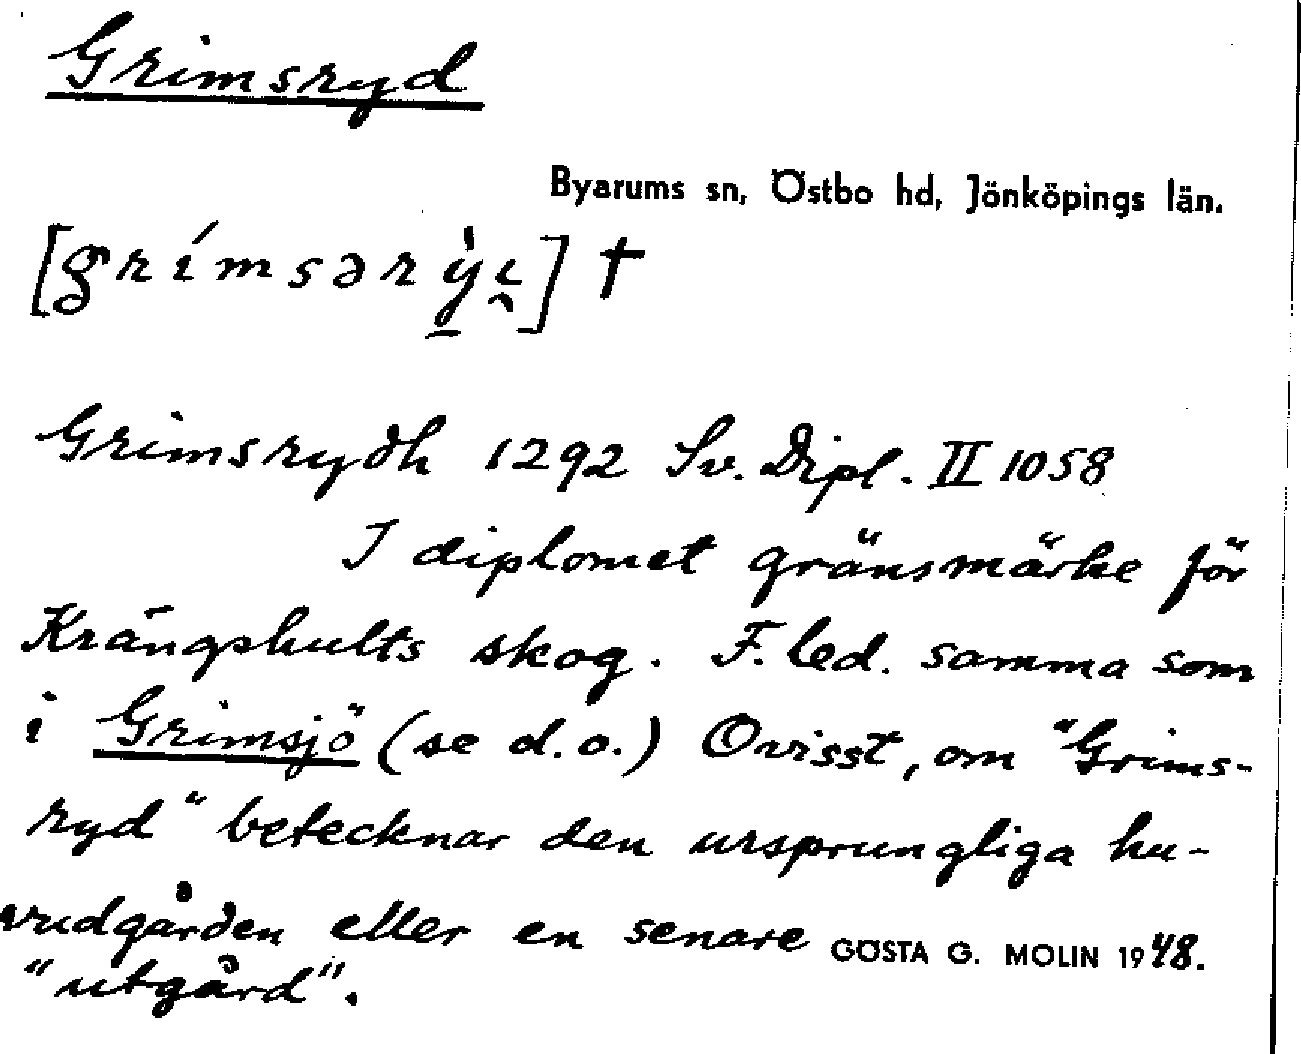 Grimsryd
Byarums sn, Östbo hd, Jönköpings län.
[grímsərỳ̠i̯] †
Grimsrydh 1292 Sv. Dipl. II 1058
I diplomet gränsmärke för
Krängshults skog. F. led. samma som
i Grimsjö (se d.o.) Ovisst, om "Grims-
ryd" betecknar den ursprungliga hu-
vudgården eller en senare GÖSTA G. MOLIN 1948.
"utgård".